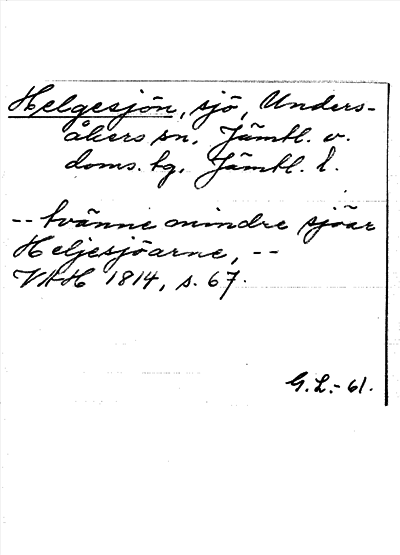 Helgesjön, sjö, Unders-
åkers sn, Jämtl. v.
doms. tg, Jämtl. l.
-- tvänne mindre sjöar
Heljesjöarne, --
VAH 1814, s. 67.
G.L.- 61.